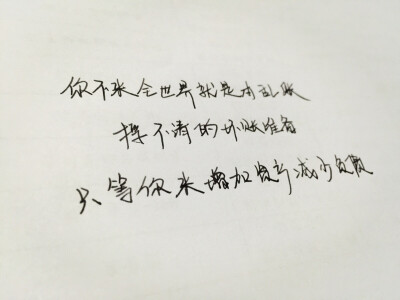 你不来全世界就是本乱账
挥不清的坏账准备
只等你来增加资产减少负债